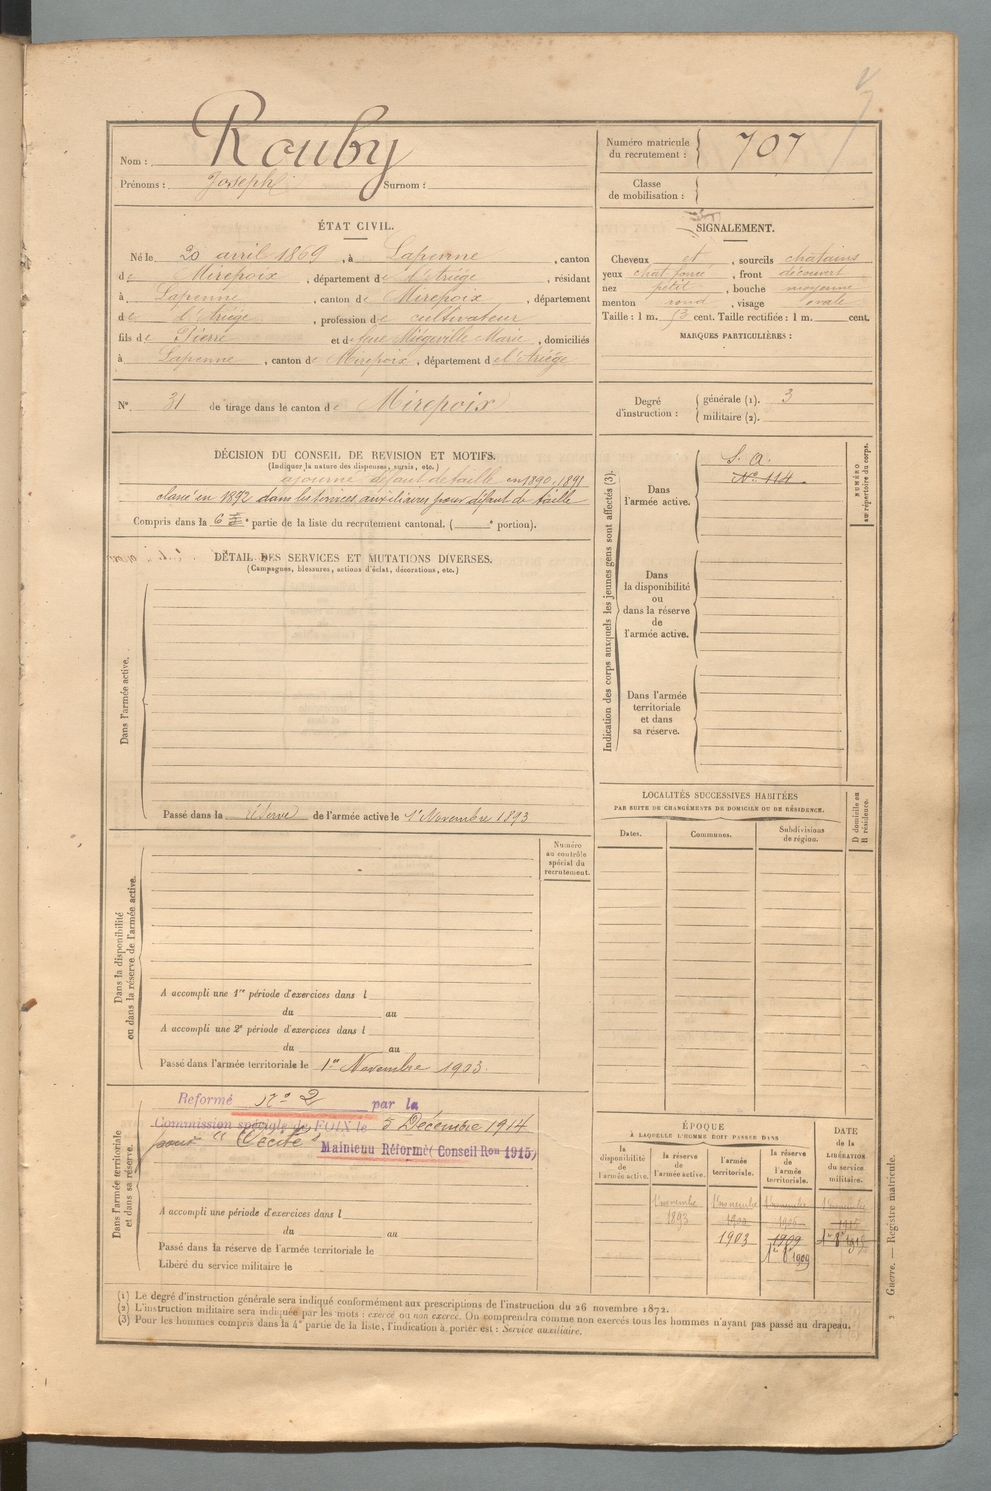 Nom : Rouby
Prénoms : Joseph Surnom :
Numéro matricule du recrutement : 707
Classe de mobilisation :
ÉTAT CIVIL.
Né le 20 avril 1869, à Lapenne, canton
de Mirepoix, département de l'Ariège, résidant
à Lapenne, canton de Mirepoix, département
de l'Ariège, profession de cultivateur
fils de Pierre et de feue Miégeville Marie, domiciliés
à Lapenne, canton de Mirepoix, département de l'Ariège
SIGNALEMENT.
Cheveux et, sourcils chatains
yeux chat foncé, front découvert
nez petit, bouche moyenne
menton rond, visage ovale
Taille : 1 m. 53 cent. Taille rectifiée : 1 m. cent.
MARQUES PARTICULIÈRES :
N° 31 de tirage dans le canton de Mirepoix
Degré d'instruction : générale (1). 3
militaire (2).
DÉCISION DU CONSEIL DE REVISION ET MOTIFS.
(Indiquer la nature des dispenses, sursis, etc.)
ajourné défaut de taille en 1890, 1891
classé en 1892 dans les services auxiliaires pour défaut de taille
Compris dans la 6e partie de la liste du recrutement cantonal. ( e portion).
DÉTAIL DES SERVICES ET MUTATIONS DIVERSES.
(Campagnes, blessures, actions d'éclat, décorations, etc.)
Dans l'armée active.
Passé dans la réserve de l'armée active le 1er Novembre 1893
Indication des corps auxquels les jeunes gens sont affectés (3).
Dans l'armée active.
S. A.
N° 114
NUMÉRO au répertoire du corps.
Dans la disponibilité ou dans la réserve de l'armée active.
Dans l'armée territoriale et dans sa réserve.
LOCALITÉS SUCCESSIVES HABITÉES
PAR SUITE DE CHANGEMENTS DE DOMICILE OU DE RÉSIDENCE.
Dates. Communes. Subdivisions de région.
D domicile ou R résidence.
Dans la disponibilité ou dans la réserve de l'armée active.
Numéro au contrôle spécial du recrutement.
A accompli une 1re période d'exercices dans l
du au
A accompli une 2e période d'exercices dans l
du au
Passé dans l'armée territoriale le 1er Novembre 1903.
Dans l'armée territoriale et dans sa réserve.
Reformé n° 2 par la
Commission spéciale de FOIX le 5 Décembre 1914
pour "Cécité"
Maintenu Réformé (Conseil Ron 1915)
A accompli une période d'exercices dans l
du au
Passé dans la réserve de l'armée territoriale le
Libéré du service militaire le
ÉPOQUE
À LAQUELLE L'HOMME DOIT PASSER DANS
la disponibilité de l'armée active.
la réserve de l'armée active.
l'armée territoriale.
la réserve de l'armée territoriale.
DATE de la LIBÉRATION du service militaire.
1er novembre 1893
1er novembre 1903
1909
1er 8bre 1909
Guerre. — Registre matricule.
(1) Le degré d'instruction générale sera indiqué conformément aux prescriptions de l'instruction du 26 novembre 1872.
(2) L'instruction militaire sera indiquée par les mots : exercé ou non exercé. On comprendra comme non exercés tous les hommes n'ayant pas passé au drapeau.
(3) Pour les hommes compris dans la 4e partie de la liste, l'indication à porter est : Service auxiliaire.